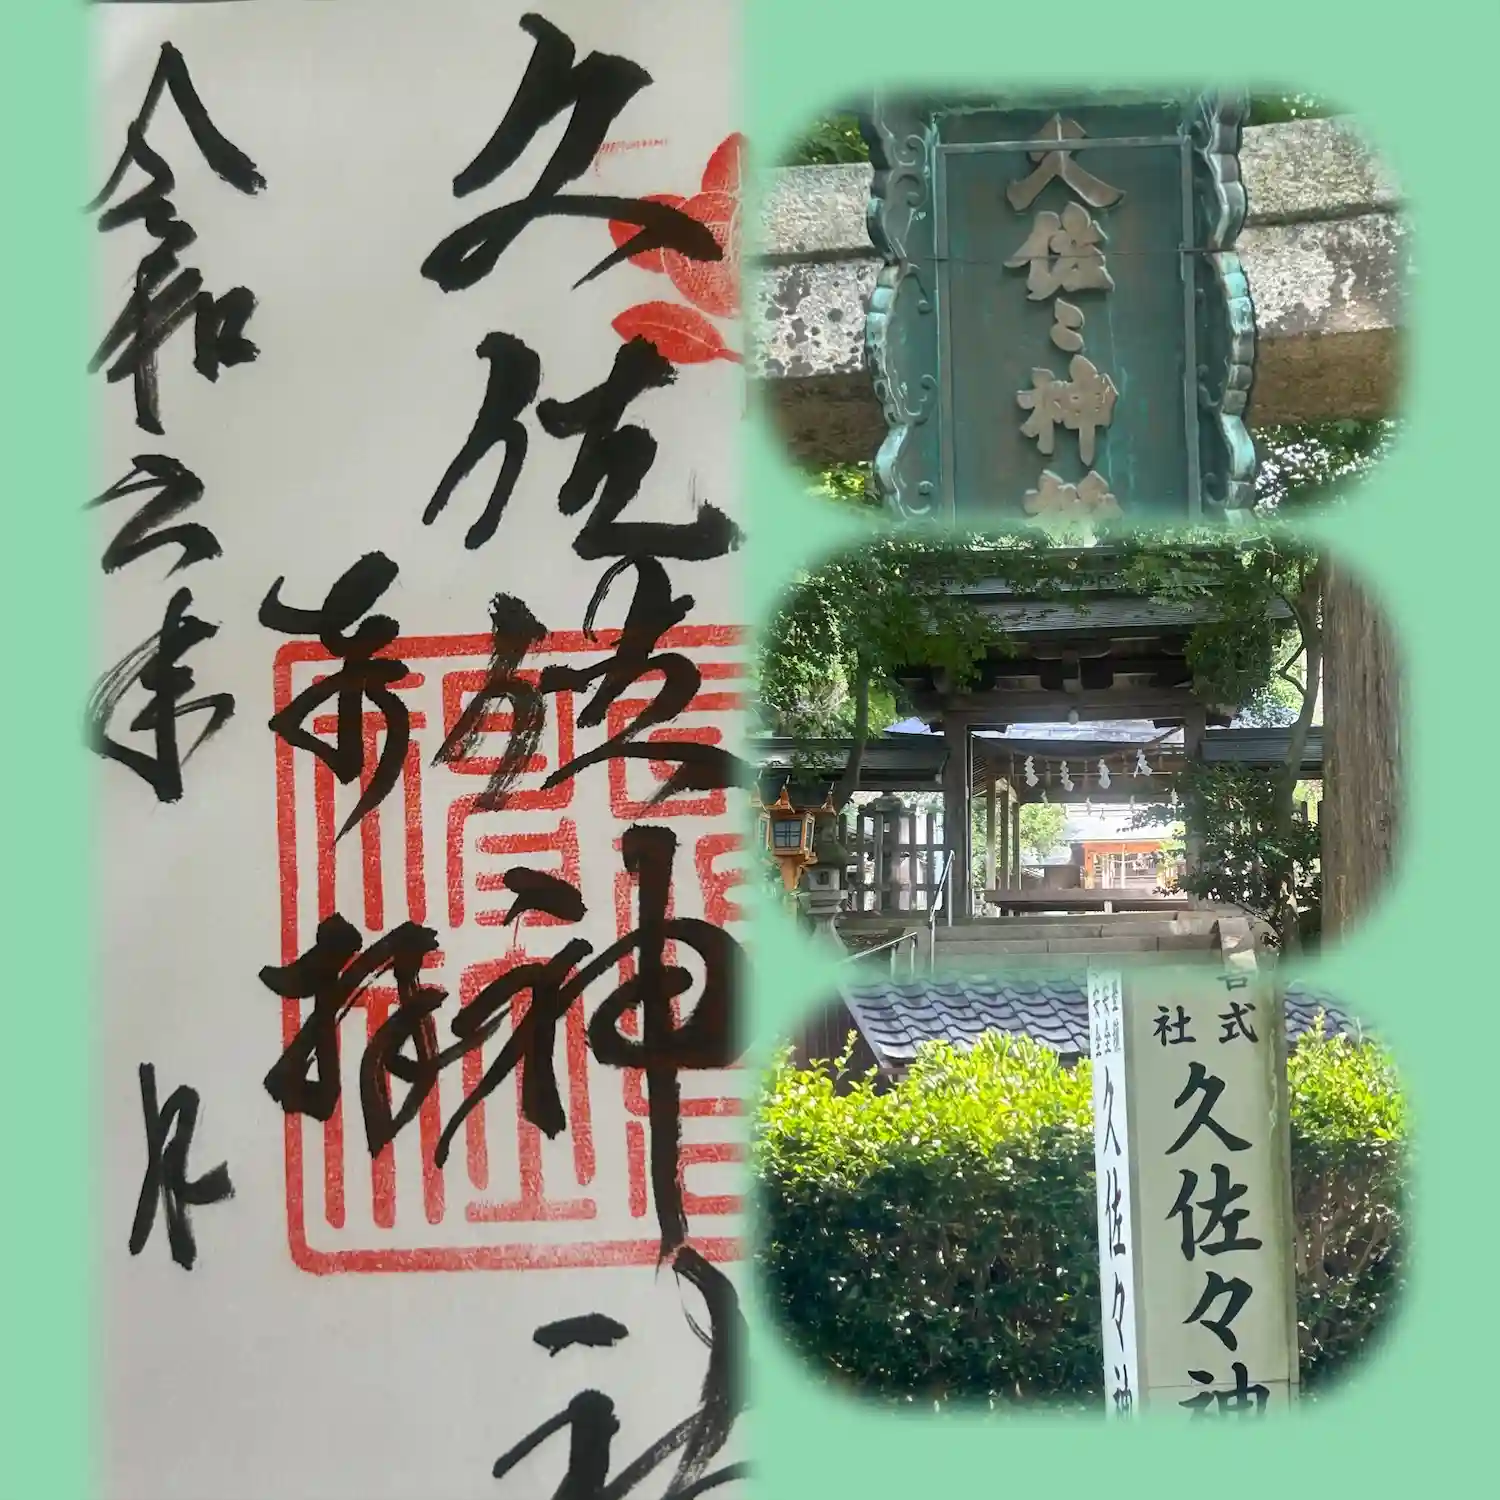 奉拝
久佐佐神社
令和六年
月
久佐々神社
式
社
久佐々神
久佐々神